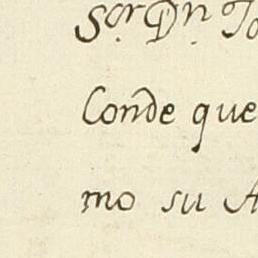 Sor. Dn.
Conde que
mo su